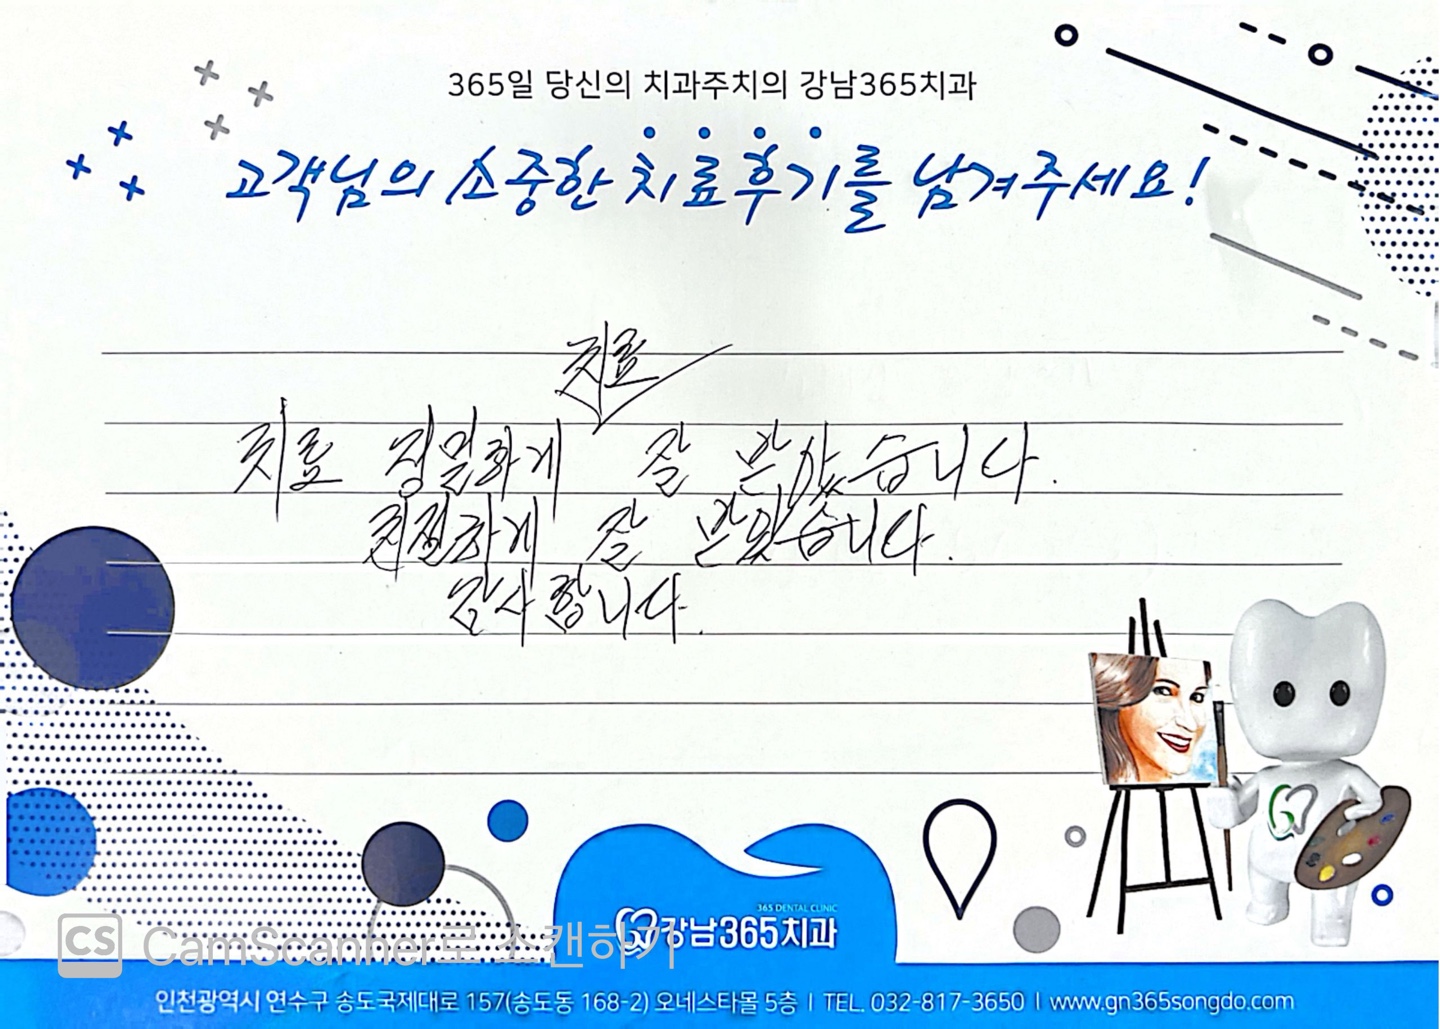 365일 당신의 치과주치의 강남365치과
고객님의 소중한 치료후기를 남겨주세요!
치료
치료 정밀하게 잘 받았습니다.
친절하게 잘 받았습니다.
감사합니다.
365 DENTAL CLINIC
강남365치과
CS CamScanner로 스캔하기
인천광역시 연수구 송도국제대로 157(송도동 168-2) 오네스타몰 5층 I TEL. 032-817-3650 I www.gn365songdo.com